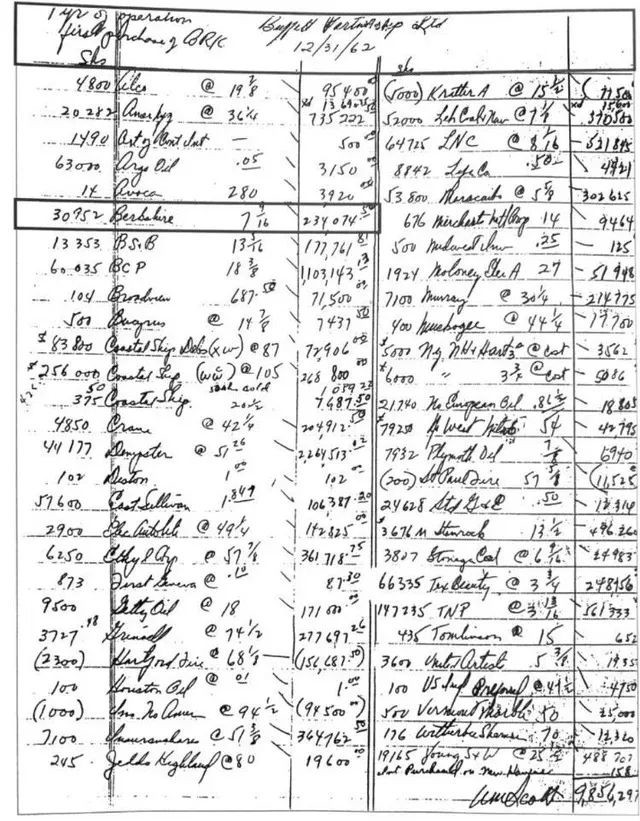 1 yr of operation
first purchase of BRK
Buffett Partnership Ltd
12/31/62
Shs
4800 Cilco @ 19 7/8 95400 00
20 282 @ 36 1/4 735 222 50
1490 Art of Cont Int — 500 00
63000 Argo Oil .05 3150 00
14 Avoca 280 3920 00
30952 Berkshire 7 9/16 234,074
13 353 B S B 13 5/16 177,761 81
60,035 B C P 18 3/8 1,103,143 13
104 Broadview 687.50 71,500 00
500 Bucyrus @ 14 7/8 7437 50
$ 83 800 Coastal Ship Debs (xw) @ 87 72906 00
$ 256 000 Coastal Ship (ww) @ 105 268 800 00
375 Coastal Ship. 20 1/2 7,687.50
4850 Crane @ 42 1/4 204912 50
44 177 Dempster @ 51 26 2,264,513 02
102 Diston 1 00 102 00
57600 East Sullivan 1.849 106387.20
2900 Elec Autolite @ 49 1/4 142825 00
6250 @ 57 7/8 361718 75
873 First Geneva @ .10 87.30
9500 Getty Oil @ 18 171 000 00
3727 48 Grinnell @ 74 1/2 277697 26
(2300) Hartford Fire @ 68 1/8 (156,687.50)
100 Houston Oil @ 01 1.00
(1000) Ins. No Amer @ 94 1/2 (94 500 00)
7100 Insuranshares @ 51 3/8 364762
245 Jeddo Highland @ 80 19600 00
Shs
(5000) Kratter A @ 15 1/2 (77500
52000 Leh Coal & Nav @ 7 1/8 370500
64725 LNC @ 8 1/16 521845
8842 Life Co .50 4421
53 800 Maracaibo @ 5 5/8 302625
676 Merchants Ntl Prop 14 9464
500 Midwest Inv .25 125
1924 Moloney Elec A 27 51948
7100 Murray @ 30 1/4 214775
400 Muskogee @ 44 1/4 17700
$ 5000 N.Y. NH & Hart @ cost 3562
$ 6000 " @ cost 5086
21,740 No European Oil .86 1/2 18805
7932 Plymouth Oil 7/8 6940
(200) St Paul Fire 57 5/8 (11,525
24628 Std G & E .50 12,314
3676 m Stenrock 13 1/2 496260
3807 Stonega Coal @ 6 9/16 24983
66335 Tex Security @ 3 3/4 248756
147235 TNP @ 3 13/16 561333
435 Tomlinson @ 15 652
3600 United Artists 5 3/8 1935
100 US Prefered @ 47 1/2 4750
500 Vermont Marble 50 25,000
176 Witherbee Sherman 70 12,320
19165 Young S & W @ 25 1/2 488 707
Int Purchased on New 158
Wm Scott 9,856,297